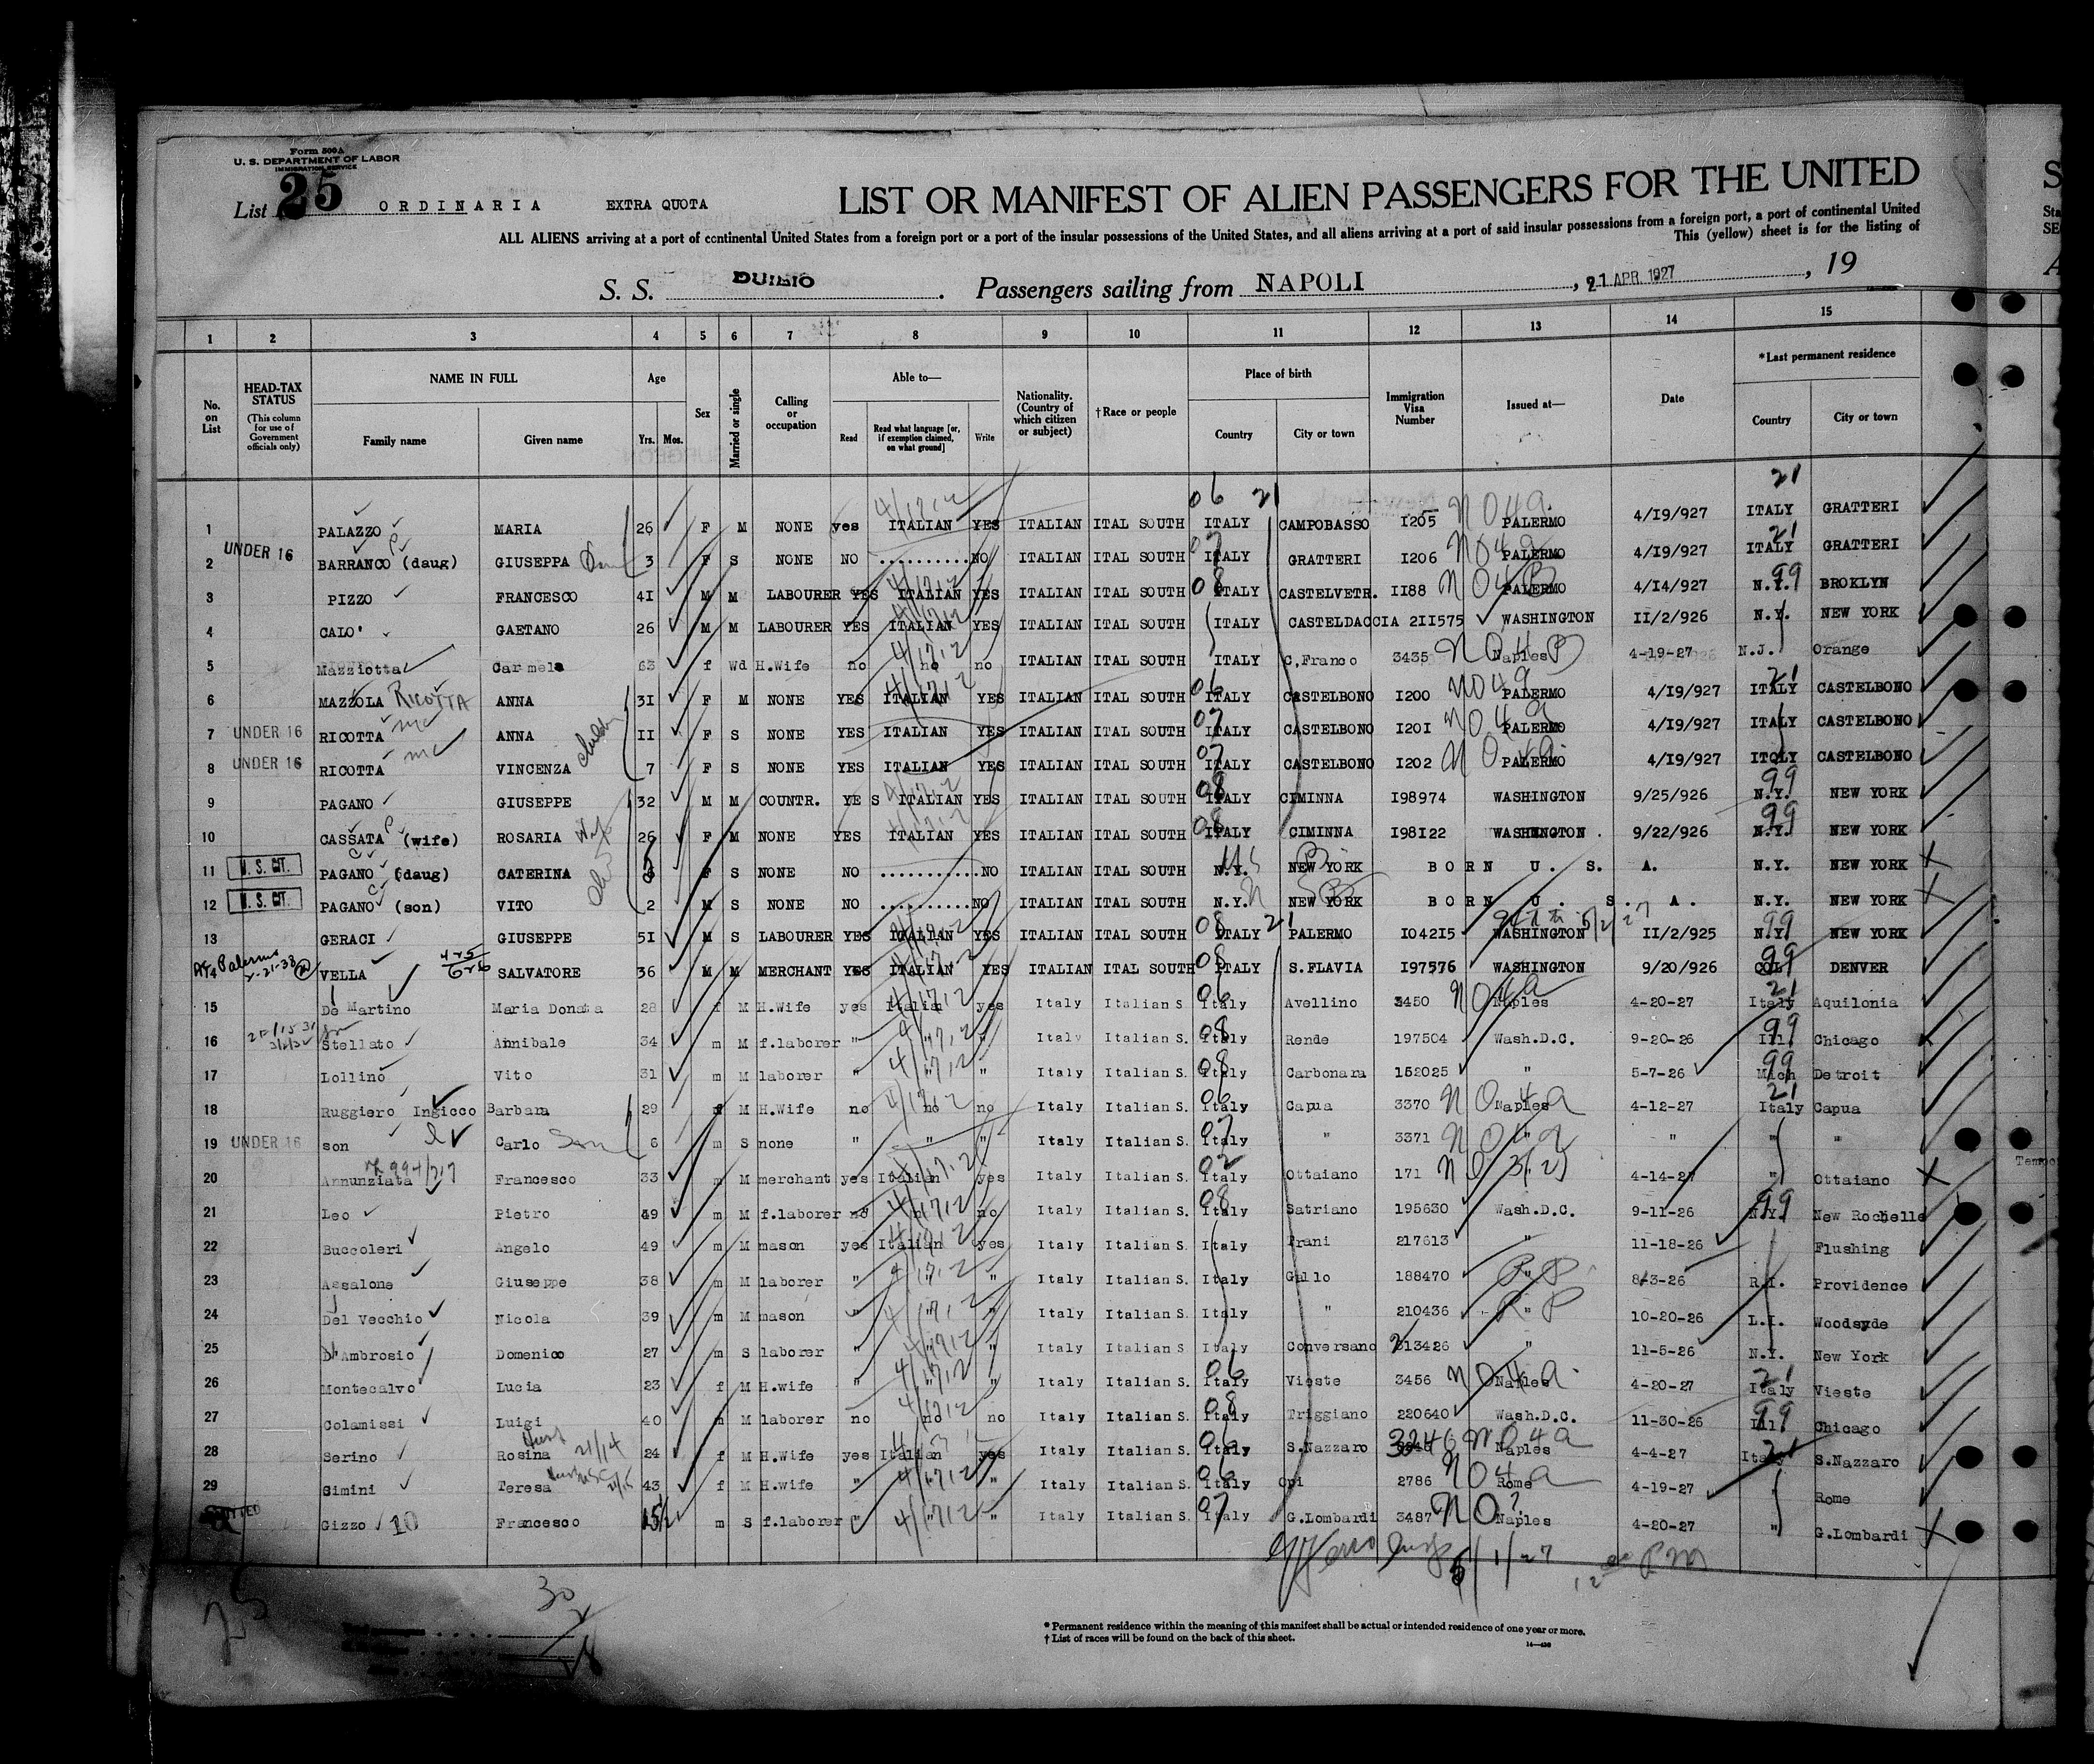 Form 500A
U. S. DEPARTMENT OF LABOR
IMMIGRATION SERVICE
List 25 ORDINARIA EXTRA QUOTA LIST OR MANIFEST OF ALIEN PASSENGERS FOR THE UNITED
ALL ALIENS arriving at a port of continental United States from a foreign port or a port of the insular possessions of the United States, and all aliens arriving at a port of said insular possessions from a foreign port, a port of continental United
This (yellow) sheet is for the listing of
S. S. DUILIO . Passengers sailing from NAPOLI , 21 APR. 1927 , 19
1 2 3 4 5 6 7 8 9 10 11 12 13 14 15
No. on List HEAD-TAX STATUS (This column for use of Government officials only) NAME IN FULL Family name Given name Age Yrs. Mos. Sex Married or single Calling or occupation Able to— Read Read what language [or, if exemption claimed, on what ground] Write Nationality. (Country of which citizen or subject) †Race or people Place of birth Country City or town Immigration Visa Number Issued at— Date *Last permanent residence Country City or town
06 21 21
1 PALAZZO MARIA 26 F M NONE yes ITALIAN YES ITALIAN ITAL SOUTH ITALY CAMPOBASSO I205 PALERMO 4/I9/927 ITALY GRATTERI
2 UNDER 16 BARRANCO (daug) GIUSEPPA 3 F S NONE NO ..........NO ITALIAN ITAL SOUTH ITALY GRATTERI I206 PALERMO 4/I9/927 ITALY GRATTERI
3 PIZZO FRANCESCO 4I M M LABOURER YES ITALIAN YES ITALIAN ITAL SOUTH 08 ITALY CASTELVETR. II88 PALERMO 4/I4/927 N.Y. 99 BROKLYN
4 CALO' GAETANO 26 M M LABOURER YES ITALIAN YES ITALIAN ITAL SOUTH ITALY CASTELDACCIA 2II575 WASHINGTON II/2/926 N.Y. NEW YORK
5 Mazziotta Carmela 63 f Wd H.Wife no no no ITALIAN ITAL SOUTH ITALY C.Franco 3435 Naples 4-19-27 N.J. Orange
6 MAZZOLA RICOTTA ANNA 3I F M NONE YES ITALIAN YES ITALIAN ITAL SOUTH 06 ITALY CASTELBONO I200 PALERMO 4/I9/927 ITALY 21 CASTELBONO
7 UNDER 16 RICOTTA ANNA II F S NONE YES ITALIAN YES ITALIAN ITAL SOUTH 07 ITALY CASTELBONO I20I PALERMO 4/I9/927 ITALY CASTELBONO
8 UNDER 16 RICOTTA VINCENZA 7 F S NONE YES ITALIAN YES ITALIAN ITAL SOUTH 07 ITALY CASTELBONO I202 PALERMO 4/I9/927 ITQLY CASTELBONO
9 PAGANO GIUSEPPE 32 M M COUNTR. YE S ITALIAN YES ITALIAN ITAL SOUTH 08 ITALY CIMINNA I98974 WASHINGTON 9/25/926 N.Y. 99 NEW YORK
10 CASSATA (wife) ROSARIA 26 F M NONE YES ITALIAN YES ITALIAN ITAL SOUTH 08 ITALY CIMINNA I98I22 WASHINGTON . 9/22/926 N.Y. 99 NEW YORK
11 U. S. CIT. PAGANO (daug) CATERINA F S NONE NO ...........NO ITALIAN ITAL SOUTH N.Y. NEW YORK BORN U. S. A. N.Y. NEW YORK
12 U. S. CIT. PAGANO (son) VITO 2 M S NONE NO ..........NO ITALIAN ITAL SOUTH N.Y. NEW YORK BORN U. S. A. N.Y. NEW YORK
13 GERACI GIUSEPPE 5I M S LABOURER YES ITALIAN YES ITALIAN ITAL SOUTH 08 ITALY 21 PALERMO I042I5 WASHINGTON II/2/925 N.Y. 99 NEW YORK
Palermo VELLA SALVATORE 36 M M MERCHANT YES ITALIAN YES ITALIAN ITAL SOUTH 08 ITALY S.FLAVIA I97576 WASHINGTON 9/20/926 COL. 99 DENVER
15 De Martino Maria Donata 28 f M H.Wife yes Italian yes Italy Italian S. 06 Italy Avellino 3450 Naples 4-20-27 Italy 21 Aquilonia
16 Stellato Annibale 34 m M f.laborer " " " Italy Italian S. 08 Italy Rende 197504 Wash.D.C. 9-20-26 Ill. 99 Chicago
17 Lollino Vito 31 m M laborer " " " Italy Italian S. 08 Italy Carbonara 152025 " 5-7-26 Mich 99 Detroit
18 Ruggiero Ingicco Barbara 29 f M H.Wife no no no Italy Italian S. 06 Italy Capua 3370 Naples 4-12-27 Italy 21 Capua
19 UNDER 16 son Carlo Son 6 m S none " " " Italy Italian S. 07 Italy " 3371 " " " "
20 Annunziata Francesco 33 m M merchant yes Italian yes Italy Italian S. 02 Italy Ottaiano 171 4-14-27 " Ottaiano
21 Leo Pietro 49 m M f.laborer no no Italy Italian S. 08 Italy Satriano 195630 Wash.D.C. 9-11-26 N.Y. 99 New Rochelle
22 Buccoleri Angelo 49 m M mason yes Italian yes Italy Italian S. Italy Trani 217613 " 11-18-26 Flushing
23 Assalone Giuseppe 38 m M laborer " " " Italy Italian S. Italy Gallo 188470 " 8-3-26 R.I. Providence
24 Del Vecchio Nicola 39 m M mason " " " Italy Italian S. Italy " 210436 " 10-20-26 L.I. Woodsyde
25 D'Ambrosio Domenico 27 m S laborer " " " Italy Italian S. Italy Conversano 213426 " 11-5-26 N.Y. New York
26 Montecalvo Lucia 23 f M H.wife " " " Italy Italian S. 06 Italy Vieste 3456 Naples 4-20-27 Italy 21 Vieste
27 Colamissi Luigi 40 m M laborer no no no Italy Italian S. 08 Italy Triggiano 220640 Wash.D.C. 11-30-26 Ill. 99 Chicago
28 Serino Rosina 24 f M H.Wife yes Italian yes Italy Italian S. 06 Italy S.Nazzaro 3246 Naples 4-4-27 Italy 21 S.Nazzaro
29 Simini Teresa 43 f M H.wife " " " Italy Italian S. 06 Italy Opi 2786 Rome 4-19-27 " Rome
Gizzo 10 Francesco 15 m S f.laborer " " " Italy Italian S. 07 Italy G.Lombardi 3487 Naples 4-20-27 " G.Lombardi
5/1/27 12 PM
30
* Permanent residence within the meaning of this manifest shall be actual or intended residence of one year or more.
† List of races will be found on the back of this sheet.